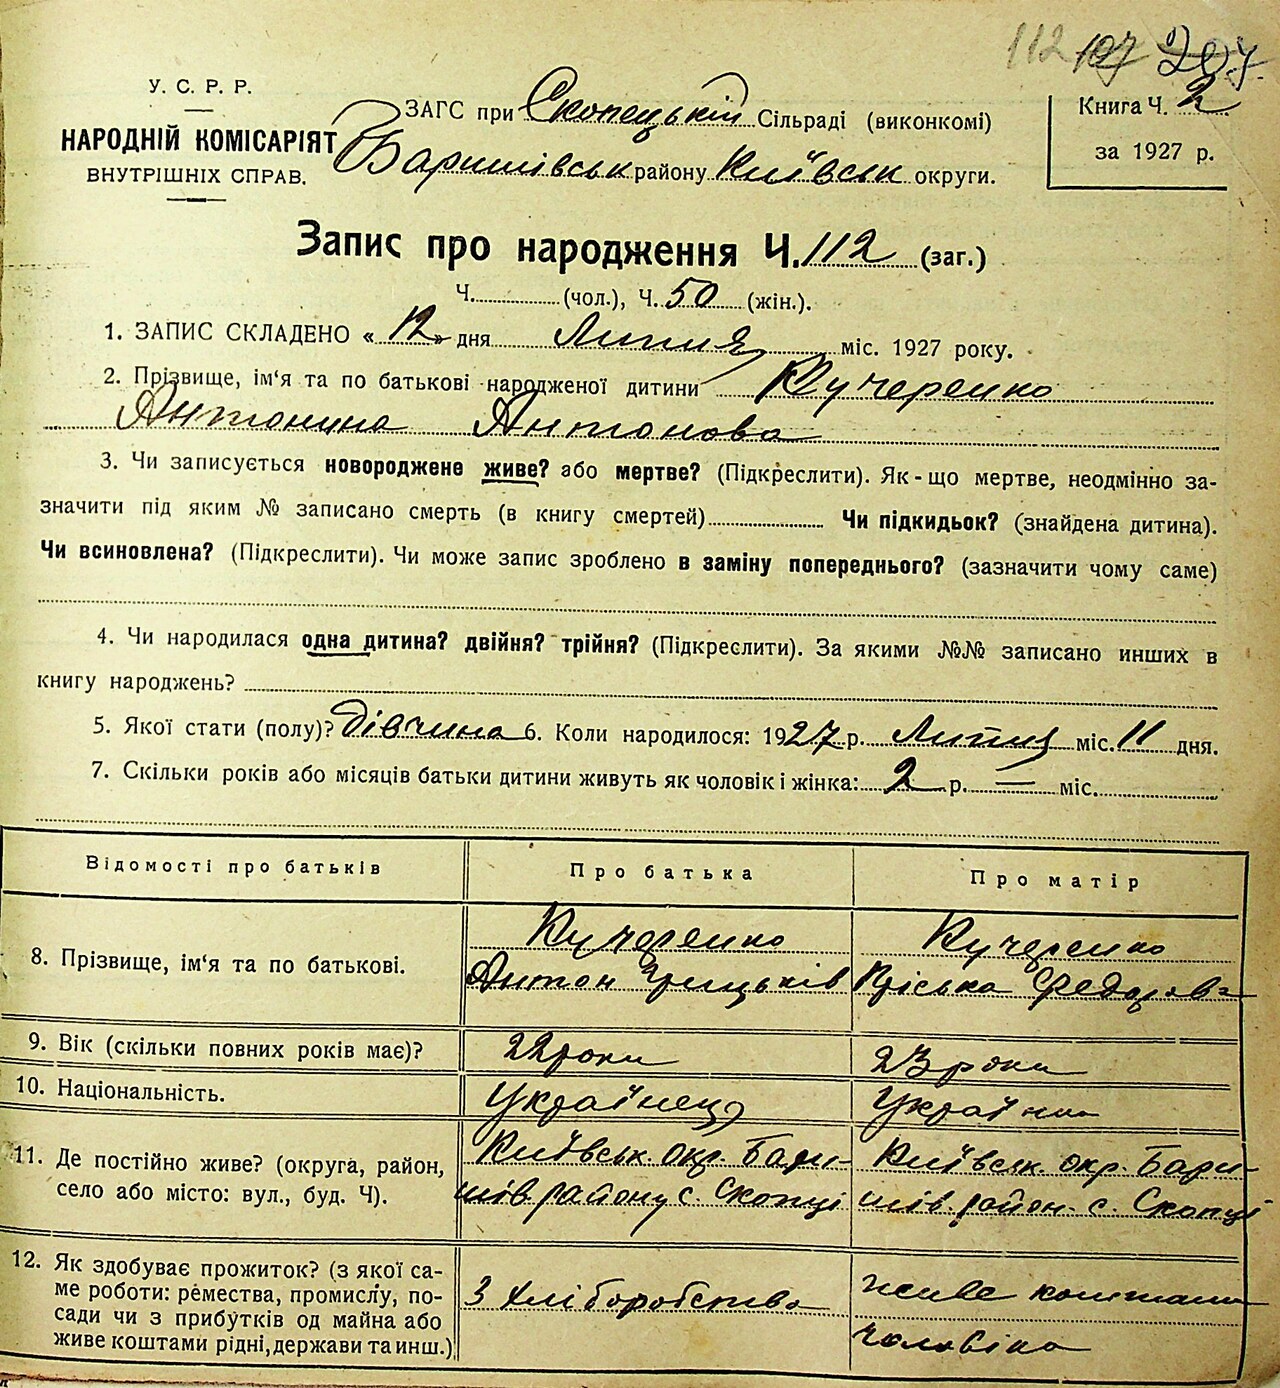 112 107 207
У. С. Р. Р.
НАРОДНІЙ КОМІСАРІЯТ
ВНУТРІШНІХ СПРАВ.
ЗАГС при Скопецькій Сільраді (виконкомі)
Баришівськ району Київськ округи.
Книга Ч. 2
за 1927 р.
Запис про народження Ч. 112 (заг.)
Ч. (чол.), Ч. 50 (жін.).
1. ЗАПИС СКЛАДЕНО « 12 » дня Липня міс. 1927 року.
2. Прізвище, ім‘я та по батькові народженої дитини Кучеренко
Антонина Антонова
3. Чи записується новороджене живе? або мертве? (Підкреслити). Як-що мертве, неодмінно за-
значити під яким № записано смерть (в книгу смертей) Чи підкидьок? (знайдена дитина).
Чи всиновлена? (Підкреслити). Чи може запис зроблено в заміну попереднього? (зазначити чому саме)
4. Чи народилася одна дитина? двійня? трійня? (Підкреслити). За якими №№ записано инших в
книгу народжень?
5. Якої стати (полу)? дівчина 6. Коли народилося: 1927 р. Липня міс. 11 дня.
7. Скільки років або місяців батьки дитини живуть як чоловік і жінка: 2 р. — міс.
Відомості про батьків Про батька Про матір
8. Прізвище, ім‘я та по батькові. Кучеренко Кучеренко
Антон Грицьків Пріська Федоров‑
9. Вік (скільки повних років має)? 22 роки 23 роки
10. Національність. Українець Українка
11. Де постійно живе? (округа, район, Київськ. окр. Бари- Київськ. окр. Бари-
село або місто: вул., буд. Ч). шів. району с. Скопці шів. район. с. Скопці
12. Як здобуває прожиток? (з якої са-
ме роботи: ремества, промислу, по- З хліборобства живе коштами
сади чи з прибутків од майна або
живе коштами рідні, держави та инш.) чоловіка